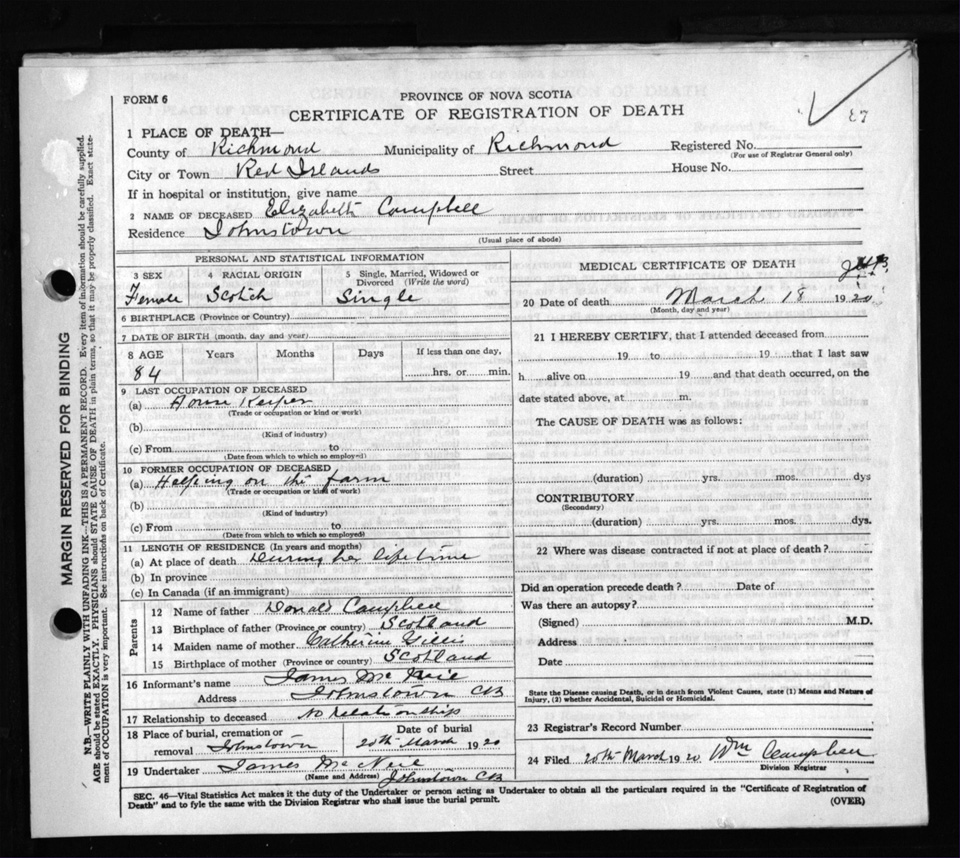 FORM 6
PROVINCE OF NOVA SCOTIA
CERTIFICATE OF REGISTRATION OF DEATH
87
1 PLACE OF DEATH—
County of Richmond Municipality of Richmond Registered No.
(For use of Registrar General only)
City or Town Red Islands Street House No.
If in hospital or institution, give name
2 NAME OF DECEASED Elizabeth Campbell
Residence Johnstown
(Usual place of abode)
PERSONAL AND STATISTICAL INFORMATION
3 SEX 4 RACIAL ORIGIN 5 Single, Married, Widowed or
Divorced (Write the word)
Female Scotch Single
6 BIRTHPLACE (Province or Country)
7 DATE OF BIRTH (month, day and year)
8 AGE Years Months Days If less than one day,
84 hrs. or min.
9 LAST OCCUPATION OF DECEASED
(a) House Keeper
(Trade or occupation or kind or work)
(b)
(Kind of industry)
(c) From to
(Date from which to which so employed)
10 FORMER OCCUPATION OF DECEASED
(a) Helping on the farm
(Trade or occupation or kind of work)
(b)
(Kind of industry)
(c) From to
(Date from which to which so employed)
11 LENGTH OF RESIDENCE (In years and months)
(a) At place of death During her lifetime
(b) In province
(c) In Canada (if an immigrant)
Parents
12 Name of father Donald Campbell
13 Birthplace of father (Province or country) Scotland
14 Maiden name of mother Catherine Gillis
15 Birthplace of mother (Province or country) Scotland
16 Informant's name James McNeil
Address Johnstown CB
17 Relationship to deceased No relationship
18 Place of burial, cremation or Date of burial
removal Johnstown 20th March 1920
19 Undertaker James McNeil
(Name and Address) Johnstown CB
MEDICAL CERTIFICATE OF DEATH
20 Date of death March 18 1920
(Month, day and year)
21 I HEREBY CERTIFY, that I attended deceased from
19 to 19 that I last saw
h alive on 19 and that death occurred, on the
date stated above, at m.
The CAUSE OF DEATH was as follows:
(duration) yrs. mos. dys
CONTRIBUTORY
(Secondary)
(duration) yrs. mos. dys.
22 Where was disease contracted if not at place of death?
Did an operation precede death? Date of
Was there an autopsy?
(Signed) M.D.
Address
Date
State the Disease causing Death, or in death from Violent Causes, state (1) Means and Nature of
Injury, (2) whether Accidental, Suicidal or Homicidal.
23 Registrar's Record Number
24 Filed 20th March 1920 Wm Campbell
Division Registrar
SEC. 46—Vital Statistics Act makes it the duty of the Undertaker or person acting as Undertaker to obtain all the particulars required in the "Certificate of Registration of
Death" and to fyle the same with the Division Registrar who shall issue the burial permit.
(OVER)
MARGIN RESERVED FOR BINDING
N.B.—WRITE PLAINLY WITH UNFADING INK—THIS IS A PERMANENT RECORD. Every item of information should be carefully supplied.
AGE should be stated EXACTLY. PHYSICIANS should STATE CAUSE OF DEATH in plain terms, so that it may be properly classified. Exact state-
ment of OCCUPATION is very important. See instructions on back of Certificate.